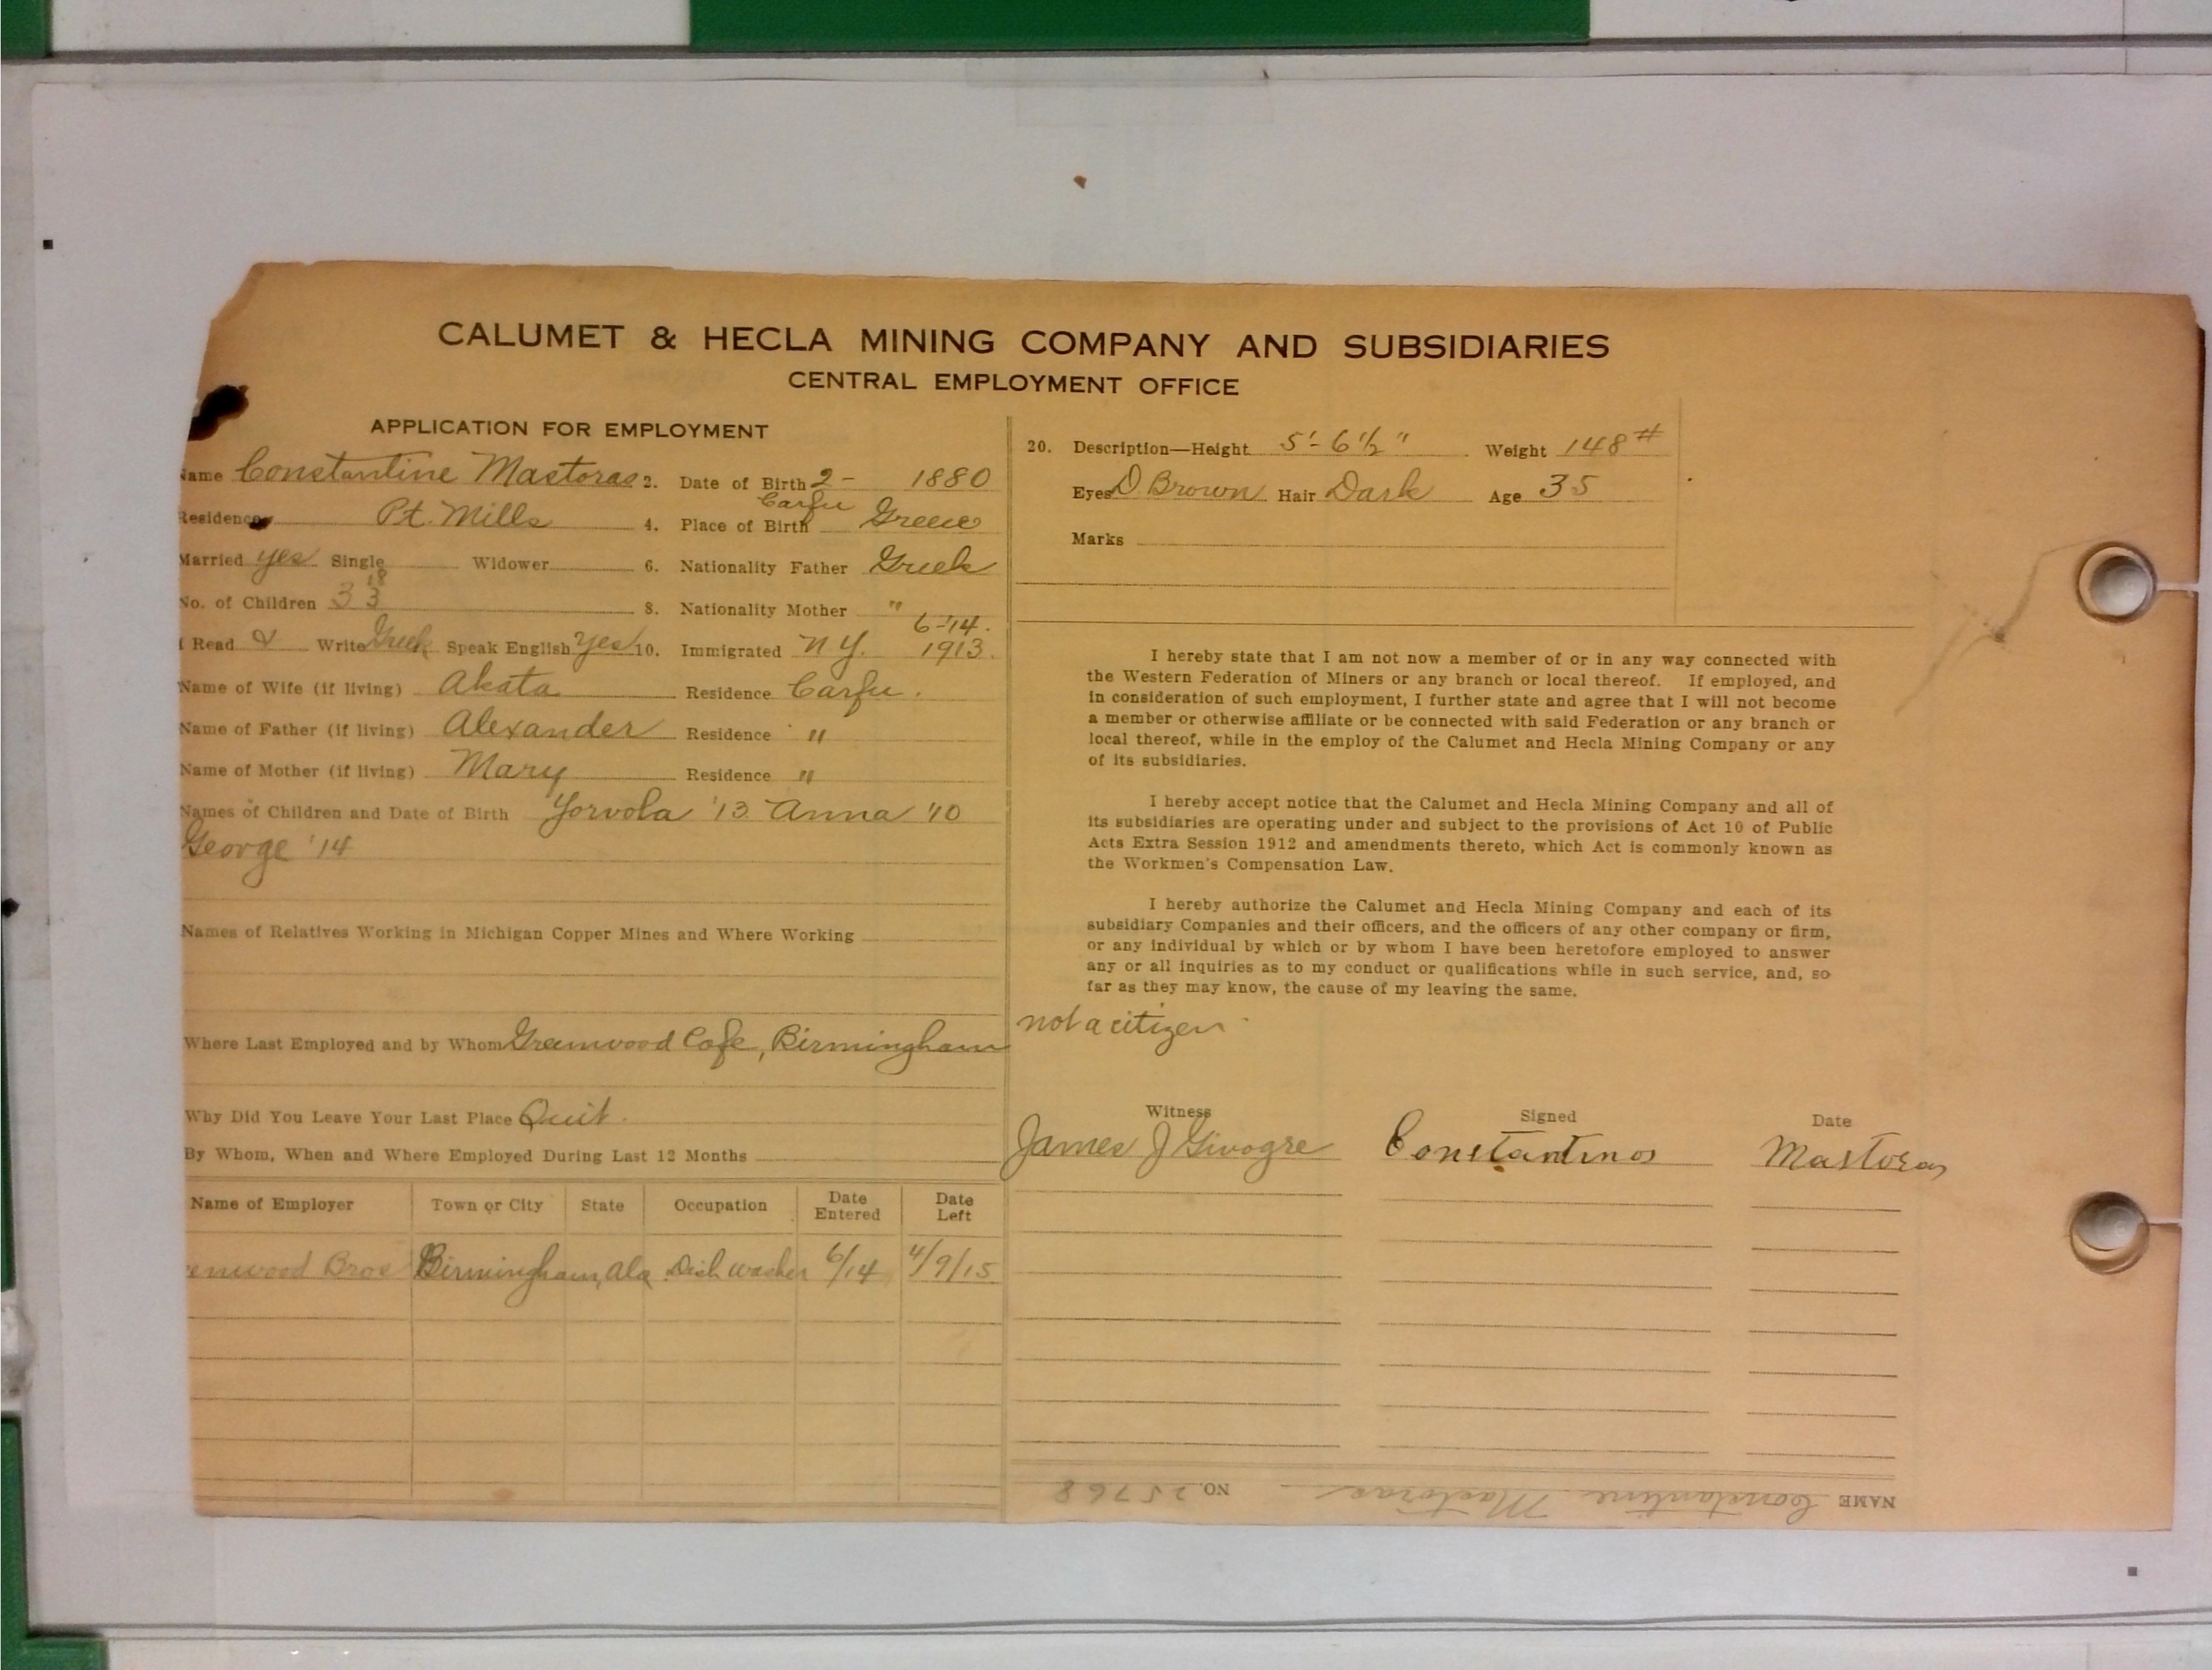 CALUMET & HECLA MINING COMPANY AND SUBSIDIARIES
CENTRAL EMPLOYMENT OFFICE
APPLICATION FOR EMPLOYMENT
Name Constantine Mastoras 2. Date of Birth 2 - 1880
Carfu
Residence Pt. Mills 4. Place of Birth Greece
Married yes Single Widower 6. Nationality Father Greek
18
No. of Children 3 3 8. Nationality Mother "
6-14.
Read & Write Greek Speak English yes 10. Immigrated N.Y. 1913.
Name of Wife (if living) Akata Residence Carfu.
Name of Father (if living) Alexander Residence "
Name of Mother (if living) Mary Residence "
Names of Children and Date of Birth Yorvola '13 Anna '10
George '14
Names of Relatives Working in Michigan Copper Mines and Where Working
Where Last Employed and by Whom Greenwood Cafe, Birmingham
Why Did You Leave Your Last Place Quit.
By Whom, When and Where Employed During Last 12 Months
Name of Employer Town or City State Occupation Date Entered Date Left
enwood Bros Birmingham, Ala Dish washer 6/14 4/9/15
20. Description—Height 5'-6½" Weight 148#
Eyes D Brown Hair Dark Age 35
Marks
I hereby state that I am not now a member of or in any way connected with
the Western Federation of Miners or any branch or local thereof. If employed, and
in consideration of such employment, I further state and agree that I will not become
a member or otherwise affiliate or be connected with said Federation or any branch or
local thereof, while in the employ of the Calumet and Hecla Mining Company or any
of its subsidiaries.
I hereby accept notice that the Calumet and Hecla Mining Company and all of
its subsidiaries are operating under and subject to the provisions of Act 10 of Public
Acts Extra Session 1912 and amendments thereto, which Act is commonly known as
the Workmen's Compensation Law.
I hereby authorize the Calumet and Hecla Mining Company and each of its
subsidiary Companies and their officers, and the officers of any other company or firm,
or any individual by which or by whom I have been heretofore employed to answer
any or all inquiries as to my conduct or qualifications while in such service, and, so
far as they may know, the cause of my leaving the same.
not a citizen
Witness Signed Date
James J Givogre Constantinos Mastoras
NAME Constantine Mastoras NO. 25768